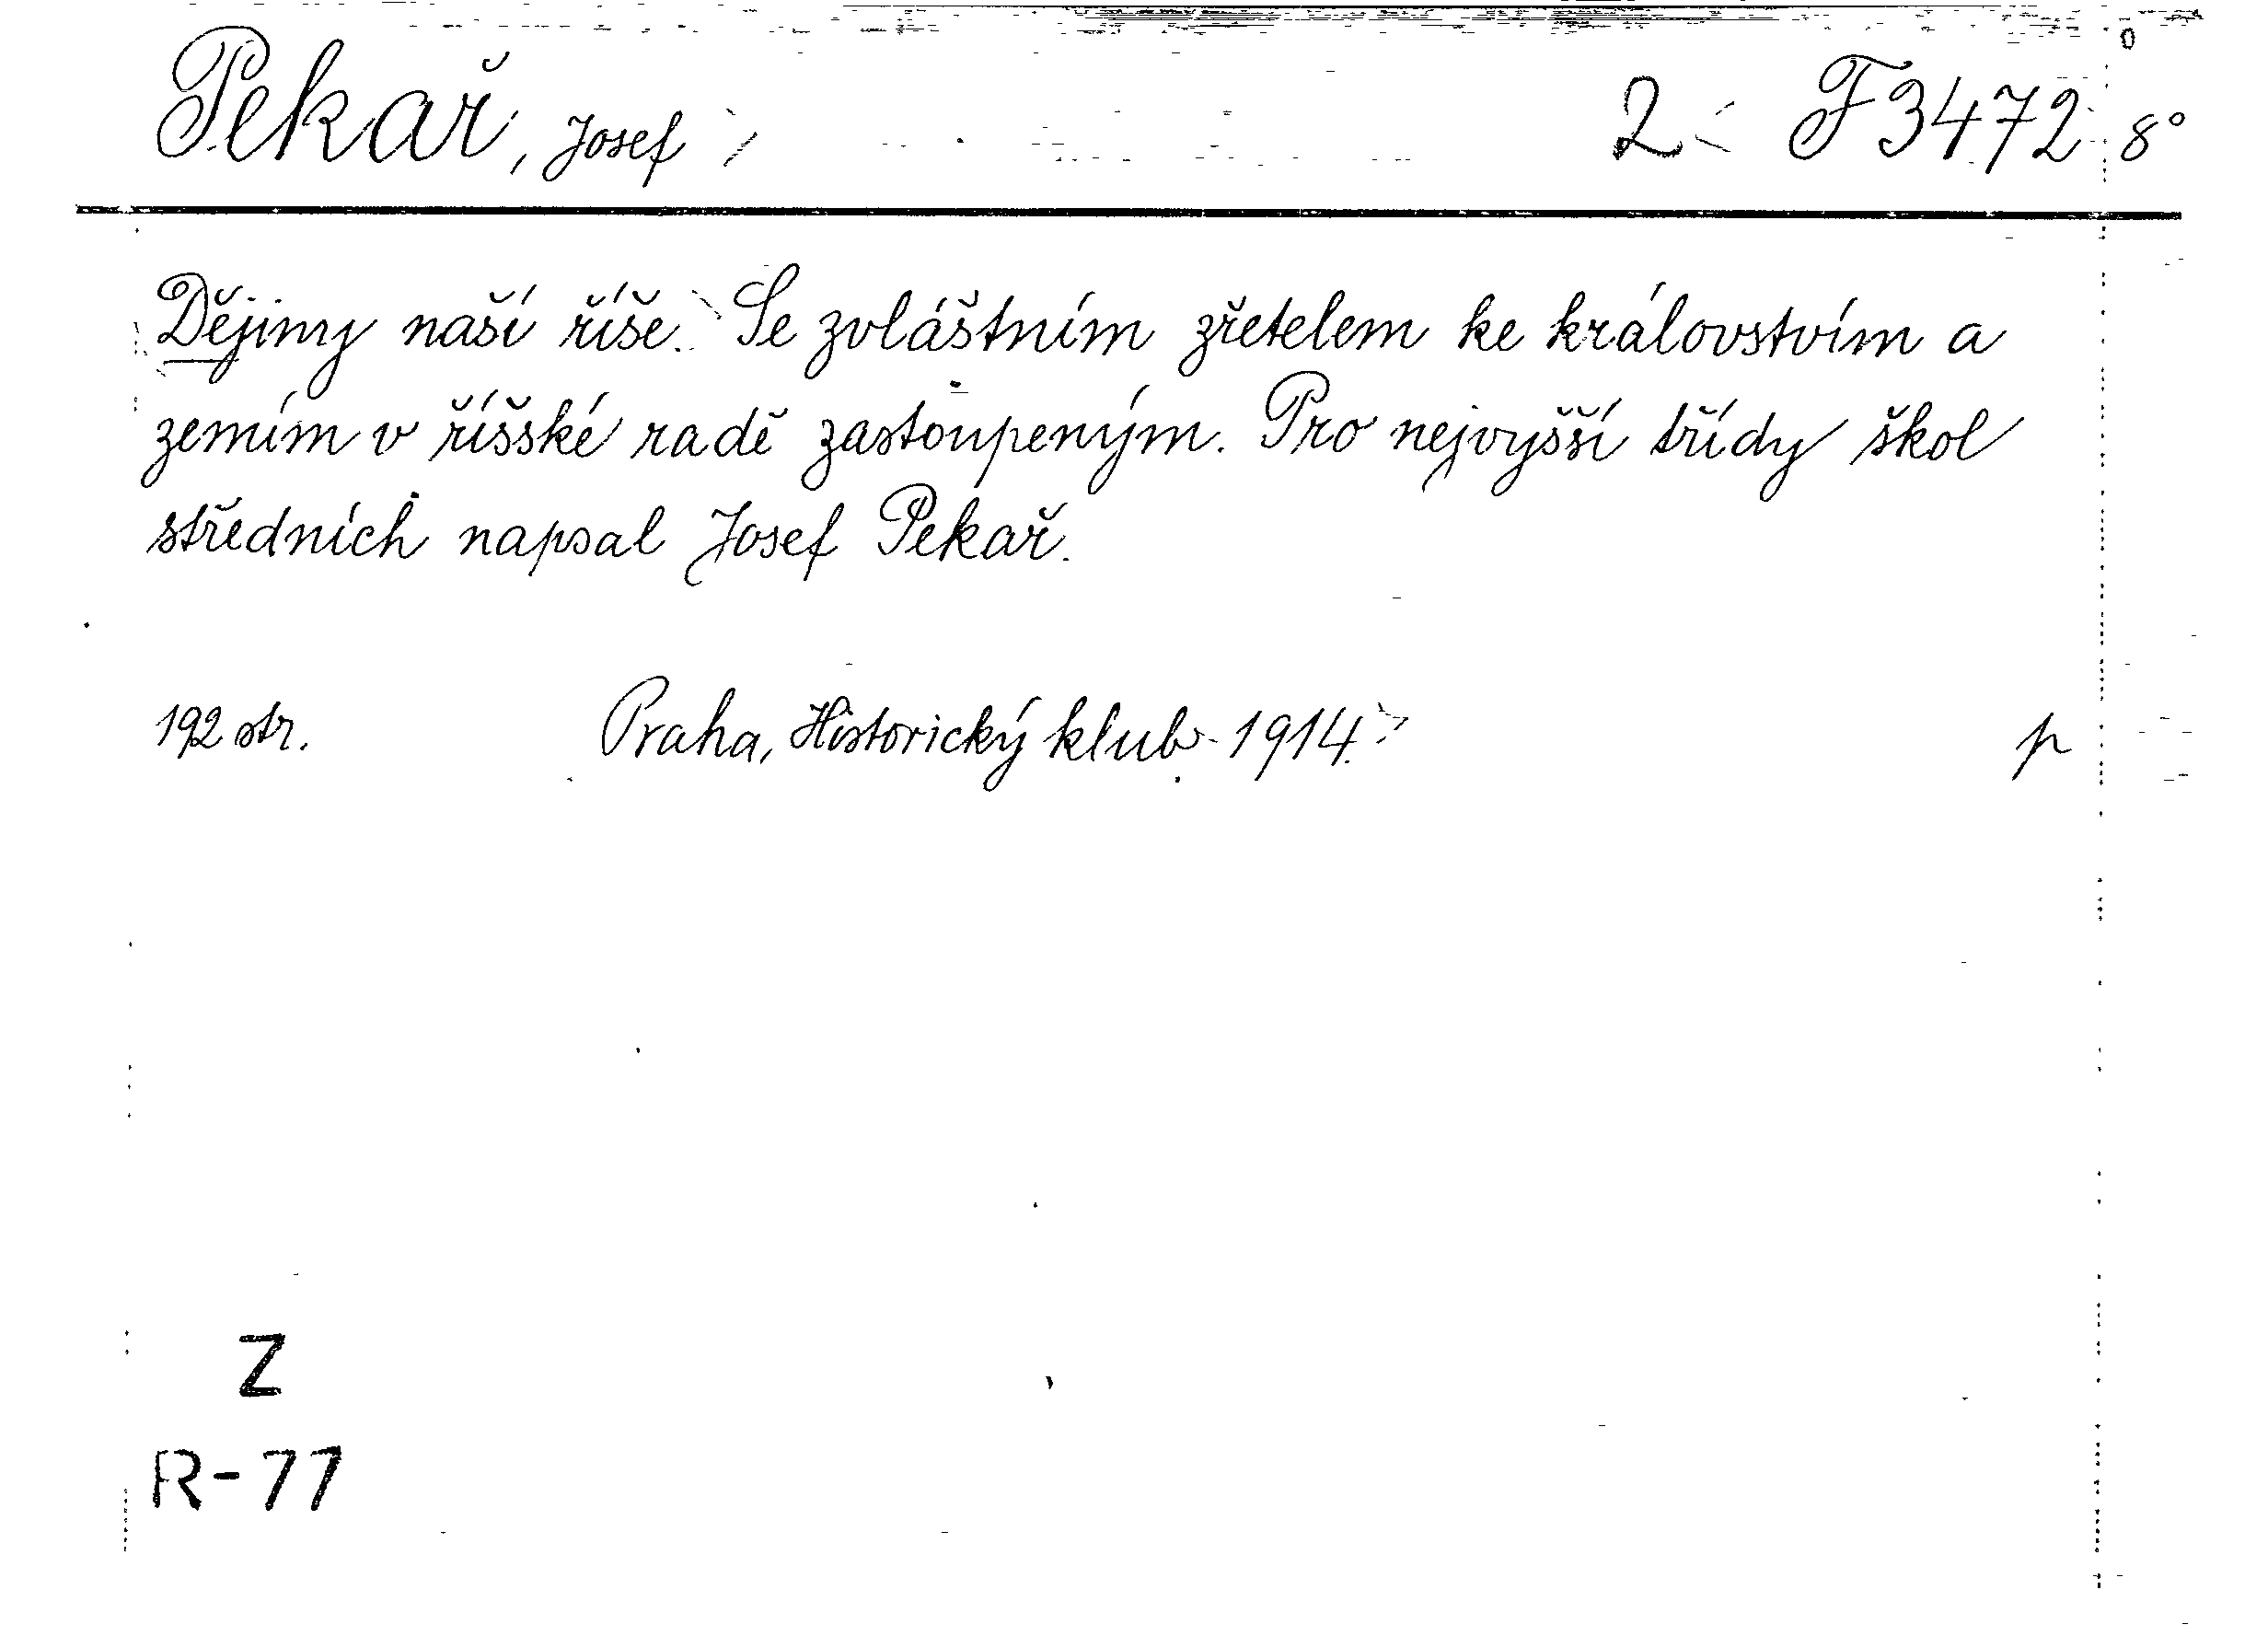 Pekař, Josef 2 F 3472 8°
Dějiny naší říše. Se zvláštním zřetelem ke královstvím a
zemím v říšské radě zastoupeným. Pro nejvyšší třídy škol
středních napsal Josef Pekař.
192 str. Praha, Historický klub 1914. p
Z
R-77